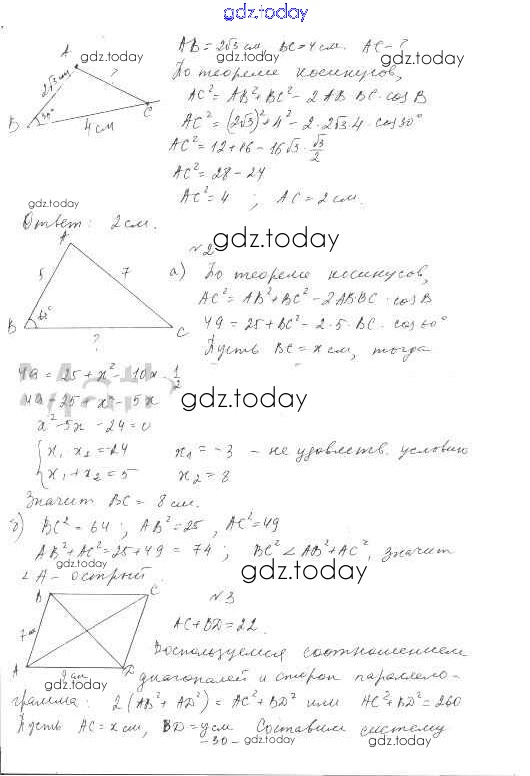 gdz.today
A
gdz.today
2√3 см
?
30°
B
4 см
C
AB = 2√3 см, BC = 4 см. AC - ?
gdz.today gdz.today
По теореме косинусов,
AC² = AB² + BC² - 2 AB BC · cos B
AC² = (2√3)² + 4² - 2 · 2√3 · 4 · cos 30°
AC² = 12 + 16 - 16√3 · √3/2
AC² = 28 - 24
AC² = 4 ; AC = 2 см.
gdz.today
Ответ: 2 см.
gdz.today
№2
A
5
7
B
60°
C
?
а) По теореме косинусов,
AC² = AB² + BC² - 2AB BC · cos B
49 = 25 + BC² - 2 · 5 · BC · cos 60°
Пусть BC = x см, тогда
49 = 25 + x² - 10x · 1/2
49 = 25 + x² - 5x
gdz.today
x² - 5x - 24 = 0
{x₁ x₂ = -24 x₁ = -3 - не удовлетв. условию
x₁ + x₂ = 5 x₂ = 8
Значит BC = 8 см.
б) BC² = 64 ; AB² = 25 , AC² = 49
gdz.today
AB² + AC² = 25 + 49 = 74 ; BC² < AB² + AC², значит
∠A - острый.
gdz.today
№3
B
C
7 см
A
D
9 см
gdz.today
AC + BD = 22.
Воспользуемся соотношением
диагоналей и сторон параллело-
грамма: 2 (AB² + AD²) = AC² + BD² или AC² + BD² = 260
Пусть AC = x см, BD = y см Составим систему
-30-
gdz.today gdz.today